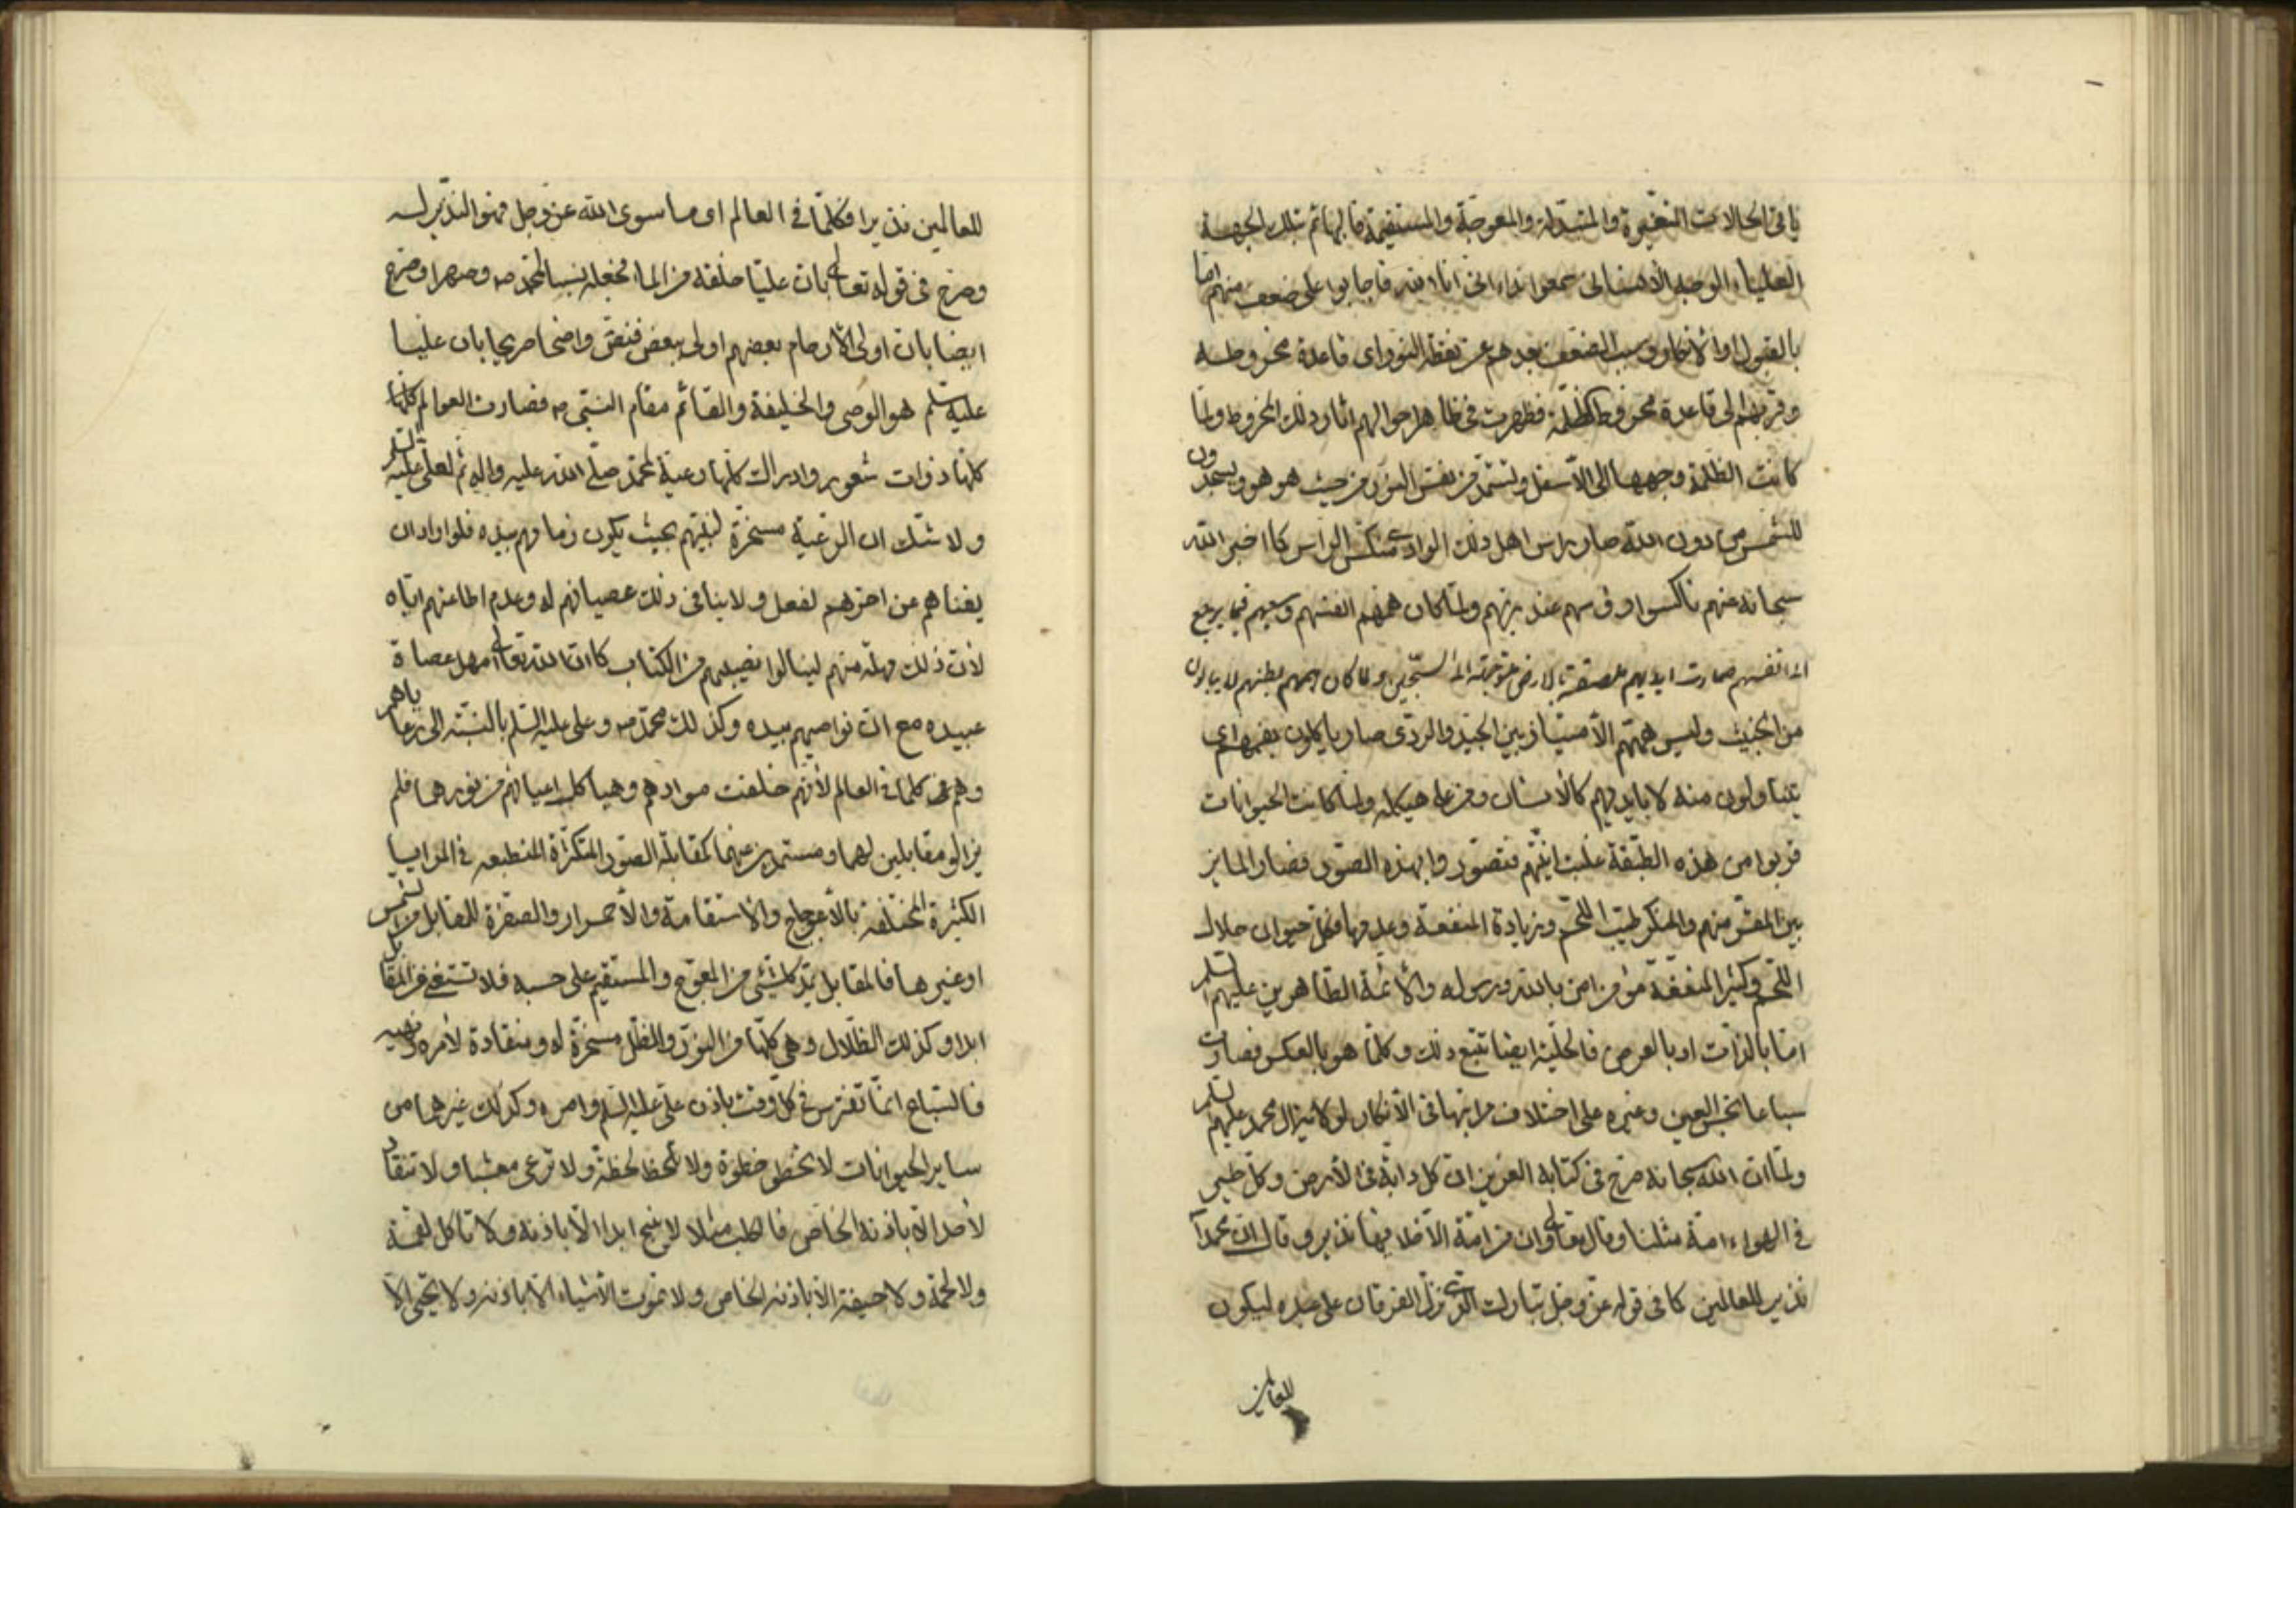 باقى الحالات المتغيرة والمتبدلة والمعوجة والمستقيمة فالبهائم بتلك الجهة
العلياء الوجه الاسفل سمعوا نداء انى انا الله فاجابوا على ضعف منهم اما
بالقبول او الانكار وسبب الضعف بعدهم عن نقطة النور اى قاعدة مخروطه
وقربهم الى قاعدة مخروط الظلمة فظهرت فى ظاهر احوالهم اثار ذلك المخروط ولما
كانت الظلمة وجهها الى الاسفل وتستمد من نفس النور من حيث هو هو ويسجدون
للشمس من دون الله صار راس اهل ذلك الوادى منكس الراس كما اخبر الله
سبحانه عنهم ناكسوا رؤسهم عند ربهم ولما كان همهم انفسهم وسعيهم فيما يرجع
الى انفسهم صارت ايديهم ملصقة بالارض متوجهة الى السجين ولما كان همهم بطنهم لا يبالون
من الخبيث وليس همتهم الامتياز بين الجيد والردى صار يا كلون بفمهم اى
يتناولون منه لا بايديهم كالانسان ومن على هيكله ولما كانت الحيوانات
قربوا من هذه الطبقة غلبت انيتهم فتصوروا بهذه الصور فصار المايز
بين المقر منهم والمنكر طيب اللحم وزيادة المنفعة وعدمها فكل حيوان حلال
اللحم وكثير المنفعة مؤمن امن بالله ورسوله والائمة الطاهرين عليهم السلم
اما بالذات او بالعرض فالحلية ايضا تتبع ذلك وكلما هو بالعكس فصارت
سباعا نجس العين وغيره على اختلاف مراتبها فى الانكار لولاية ال محمد عليهم السلم
ولما ان الله سبحانه صرح فى كتابه العزيز ان كل دابة فى الارض وكل طير
فى الهواء امة مثلنا وقال تعالى وان من امة الا خلا فيها نذير وقال ان محمدا
نذير للعالمين كما فى قوله عز وجل تبارك الذى نزل الفرقان على عبده ليكون
للعالمين
للعالمين نذيرا فكلما فى العالم او ما سوى الله عز وجل فهو النذير له
وصرح فى قوله تعالى بان عليا خلقه من الماء فجعله نسبا لمحمد ص وصهرا وصرح
ايضا بان اولى الارحام بعضهم اولى ببعض فنص واضحا صريحا بان عليا
عليه السلم هو الوصى والخليفة والقائم مقام النبى ص فصارت العوالم كلها
كلها ذوات شعور وادراك كلها رعية لمحمد صلى الله عليه واله ثم لعلى عليه السلم
ولا شك ان الرعية مسخرة لنبيهم بحيث يكون زمامهم بيده فلو اراد ان
يفناهم عن اخرهم لفعل ولا ينافى ذلك عصيانهم له وعدم اطاعتهم اياه
لان ذلك مهلة منهم لينالوا نصيبهم من الكتاب كما ان الله تعالى امهل عصاة
عبيده مع ان نواصيهم بيده وكذلك محمد ص وعلى عليه السلم بالنسبة الى رعاياهم
وهم كلما فى العالم لانهم خلقت موادهم وهياكل اعيانهم من نورهما فلم
يزالو مقابلين لهما ومستمدين عنهما كمقابلة الصور المتكثرة المنطبعه فى المرايا
الكثيرة المختلفة بالاعوجاج والاستقامة والاحمرار والصفرة للمقابل من الشمس
او غيرها فالمقابل يمد كل شئ من المعوج والمستقيم على حسبه فلا تستغنى عن المقابل
ابدا وكذلك الظلال وهى كلها من النور والظل مسخرة له ومنقادة لامره ونهيه
فالسباع انما تفترس فى كل وقت باذن على عليه السلم وامره وكذلك غيرهما من
ساير الحيوانات لا تخطو خطوة ولا تلحظ لحظة ولا ترعى معشبا ولا تنقاد
لاحد الا باذنه الخاص فالكلب مثلا لا ينبح ابدا الا باذنه ولا تاكل لقمة
ولا لحمة ولا جيفة الا باذنه الخاص ولا تموت الاشياء الا باذنه ولا تحيى الا